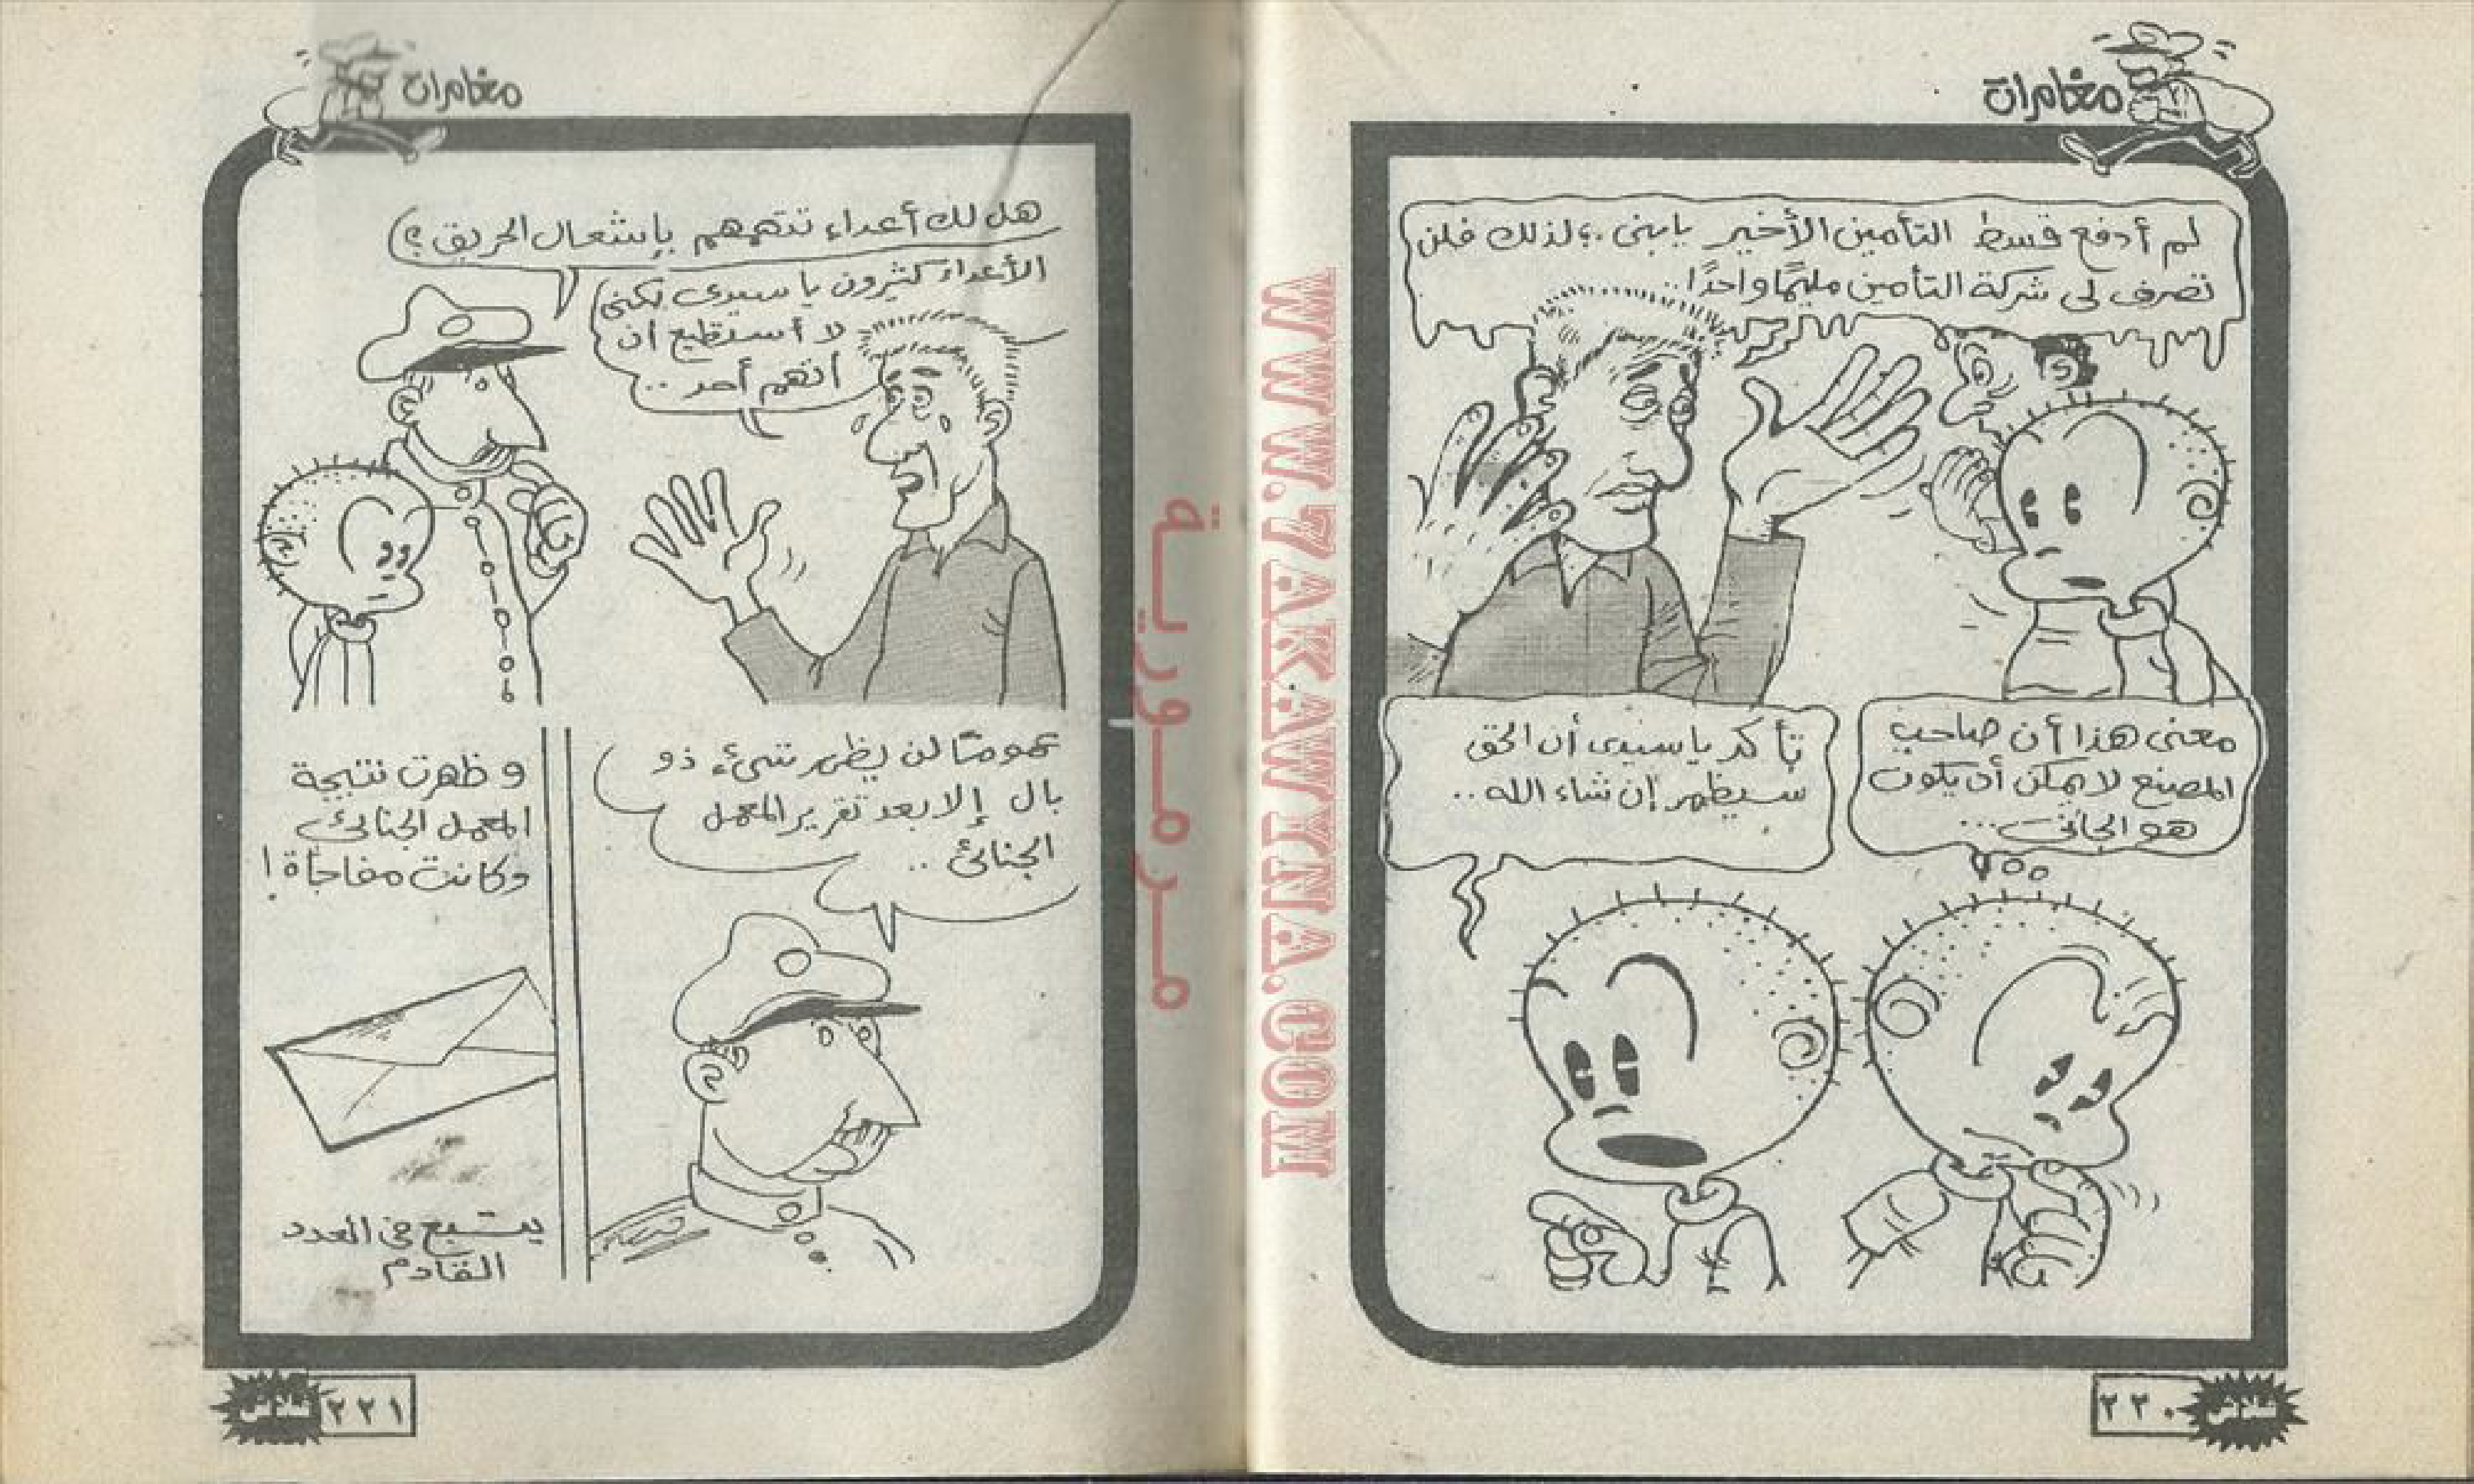 مغامرات
لم أدفع قسط التأمين الأخير يا بنى .. لذلك فلن
تصرف لى شركة التأمين مليمًا واحدًا..
معنى هذا أن صاحب
المصنع لا يمكن أن يكون
هو الجانى...
تأكد يا سيدى أن الحق
سيظهر إن شاء الله ..
٢٢٠
WWW.7AKAWINA.COM
مرمورية
مغامرات
هل لك أعداء تتهمهم بإشعال الحريق ؟
الأعداء كثيرون يا سيدى لكنى
لا أستطيع أن
أتهم أحد ..
عمومًا لن يظهر شىء ذو
بال إلا بعد تقرير المعمل
الجنائى ..
و ظهرت نتيجة
المعمل الجنائى
وكانت مفاجأة !
يتبع فى العدد
القادم
٢٢١